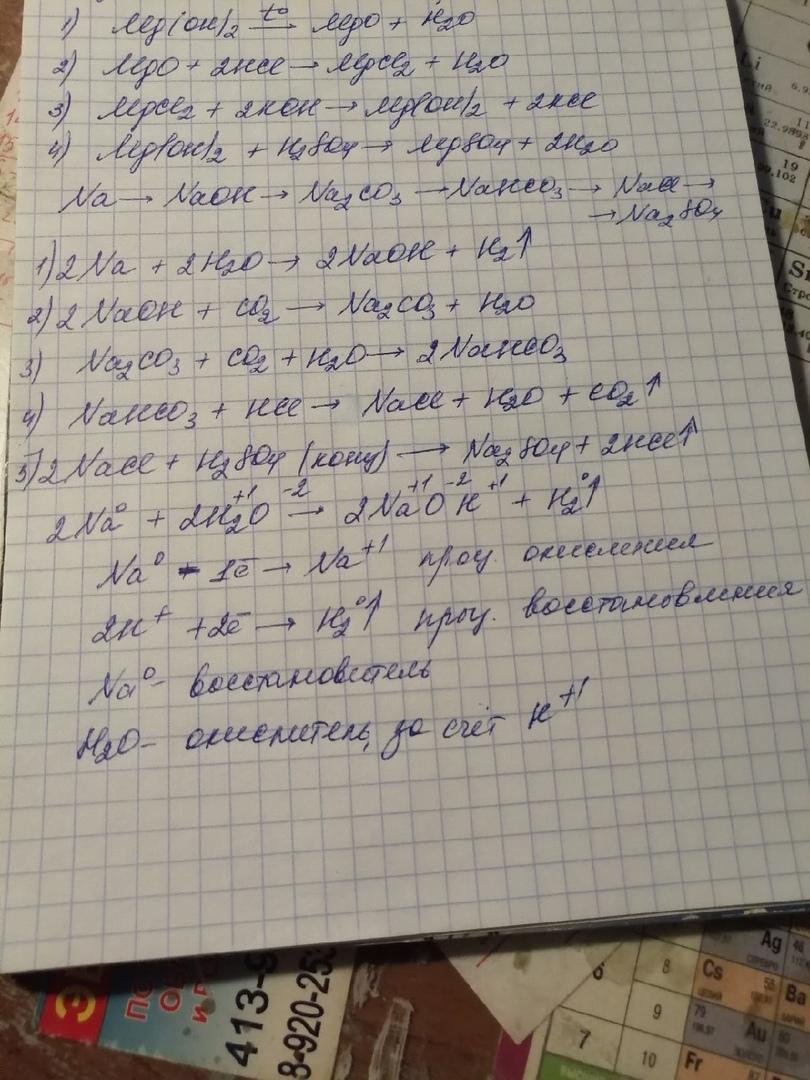 1) Mg(OH)2 t° → MgO + H2O
2) MgO + 2HCl → MgCl2 + H2O
3) MgCl2 + 2KOH → Mg(OH)2 + 2KCl
4) Mg(OH)2 + H2SO4 → MgSO4 + 2H2O
Na → NaOH → Na2CO3 → NaHCO3 → NaCl →
→ Na2SO4
1) 2Na + 2H2O → 2NaOH + H2↑
2) 2NaOH + CO2 → Na2CO3 + H2O
3) Na2CO3 + CO2 + H2O → 2NaHCO3
4) NaHCO3 + HCl → NaCl + H2O + CO2↑
5) 2NaCl + H2SO4 (конц) → Na2SO4 + 2HCl↑
2Na⁰ + 2H2⁺¹O⁻² → 2Na⁺¹O⁻²H⁺¹ + H2⁰↑
Na⁰ - 1e̅ → Na⁺¹ проц. окисления
2H⁺ + 2e̅ → H2⁰↑ проц. восстановления
Na⁰ - восстановитель
H2O - окислитель, за счёт H⁺¹
Li
11
19
ПО
413-9
8-920-253
6
7
8
9
10
Cs
55
ЦЕЗИЙ
Fr
87
Ag
СЕРЕБРО
79
196,97
Au
ЗОЛОТО
Ba
БАРИЙ